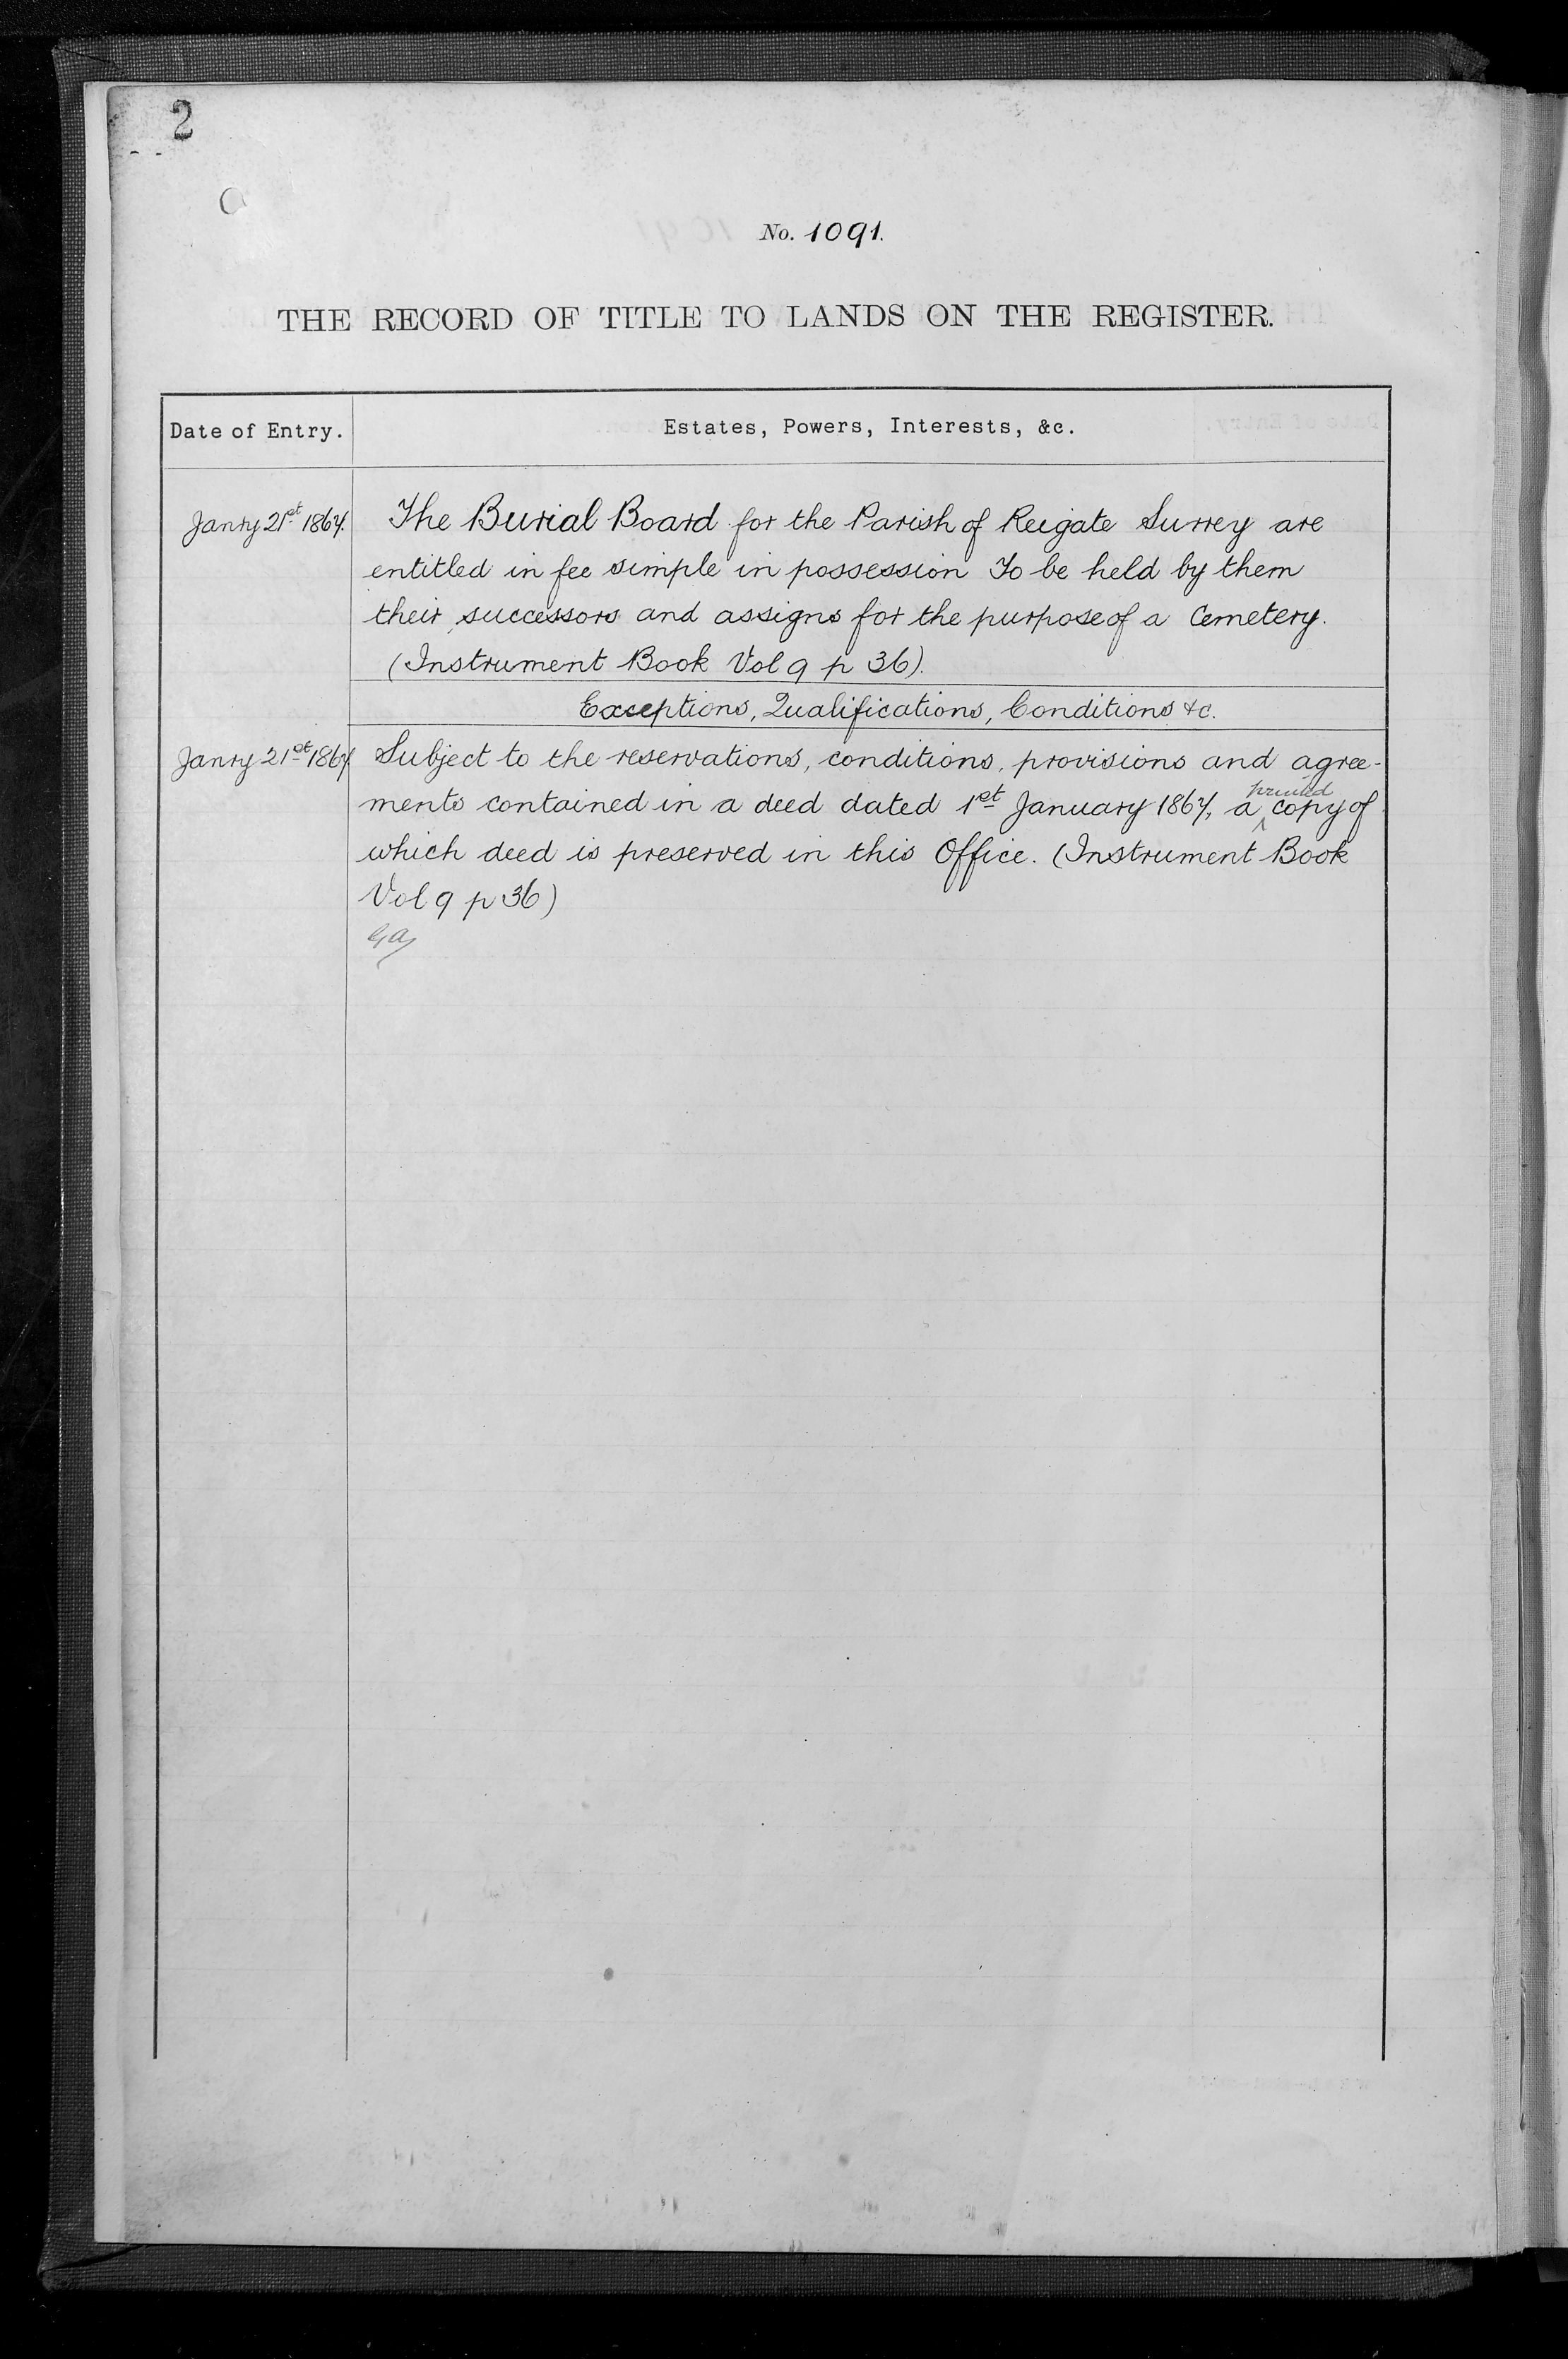 2
No. 1091.
THE RECORD OF TITLE TO LANDS ON THE REGISTER.
Date of Entry.
Estates, Powers, Interests, &c.
Janry 21st 1867.
The Burial Board for the Parish of Reigate Surrey are
entitled in fee simple in possession To be held by them
their successors and assigns for the purpose of a Cemetery.
(Instrument Book Vol 9 p 36).
Exceptions, Qualifications, Conditions &c.
Janry 21st 1867
Subject to the reservations, conditions, provisions and agree-
printed
ments contained in a deed dated 1st January 1867, a copy of
which deed is preserved in this Office. (Instrument Book
Vol 9 p 36)